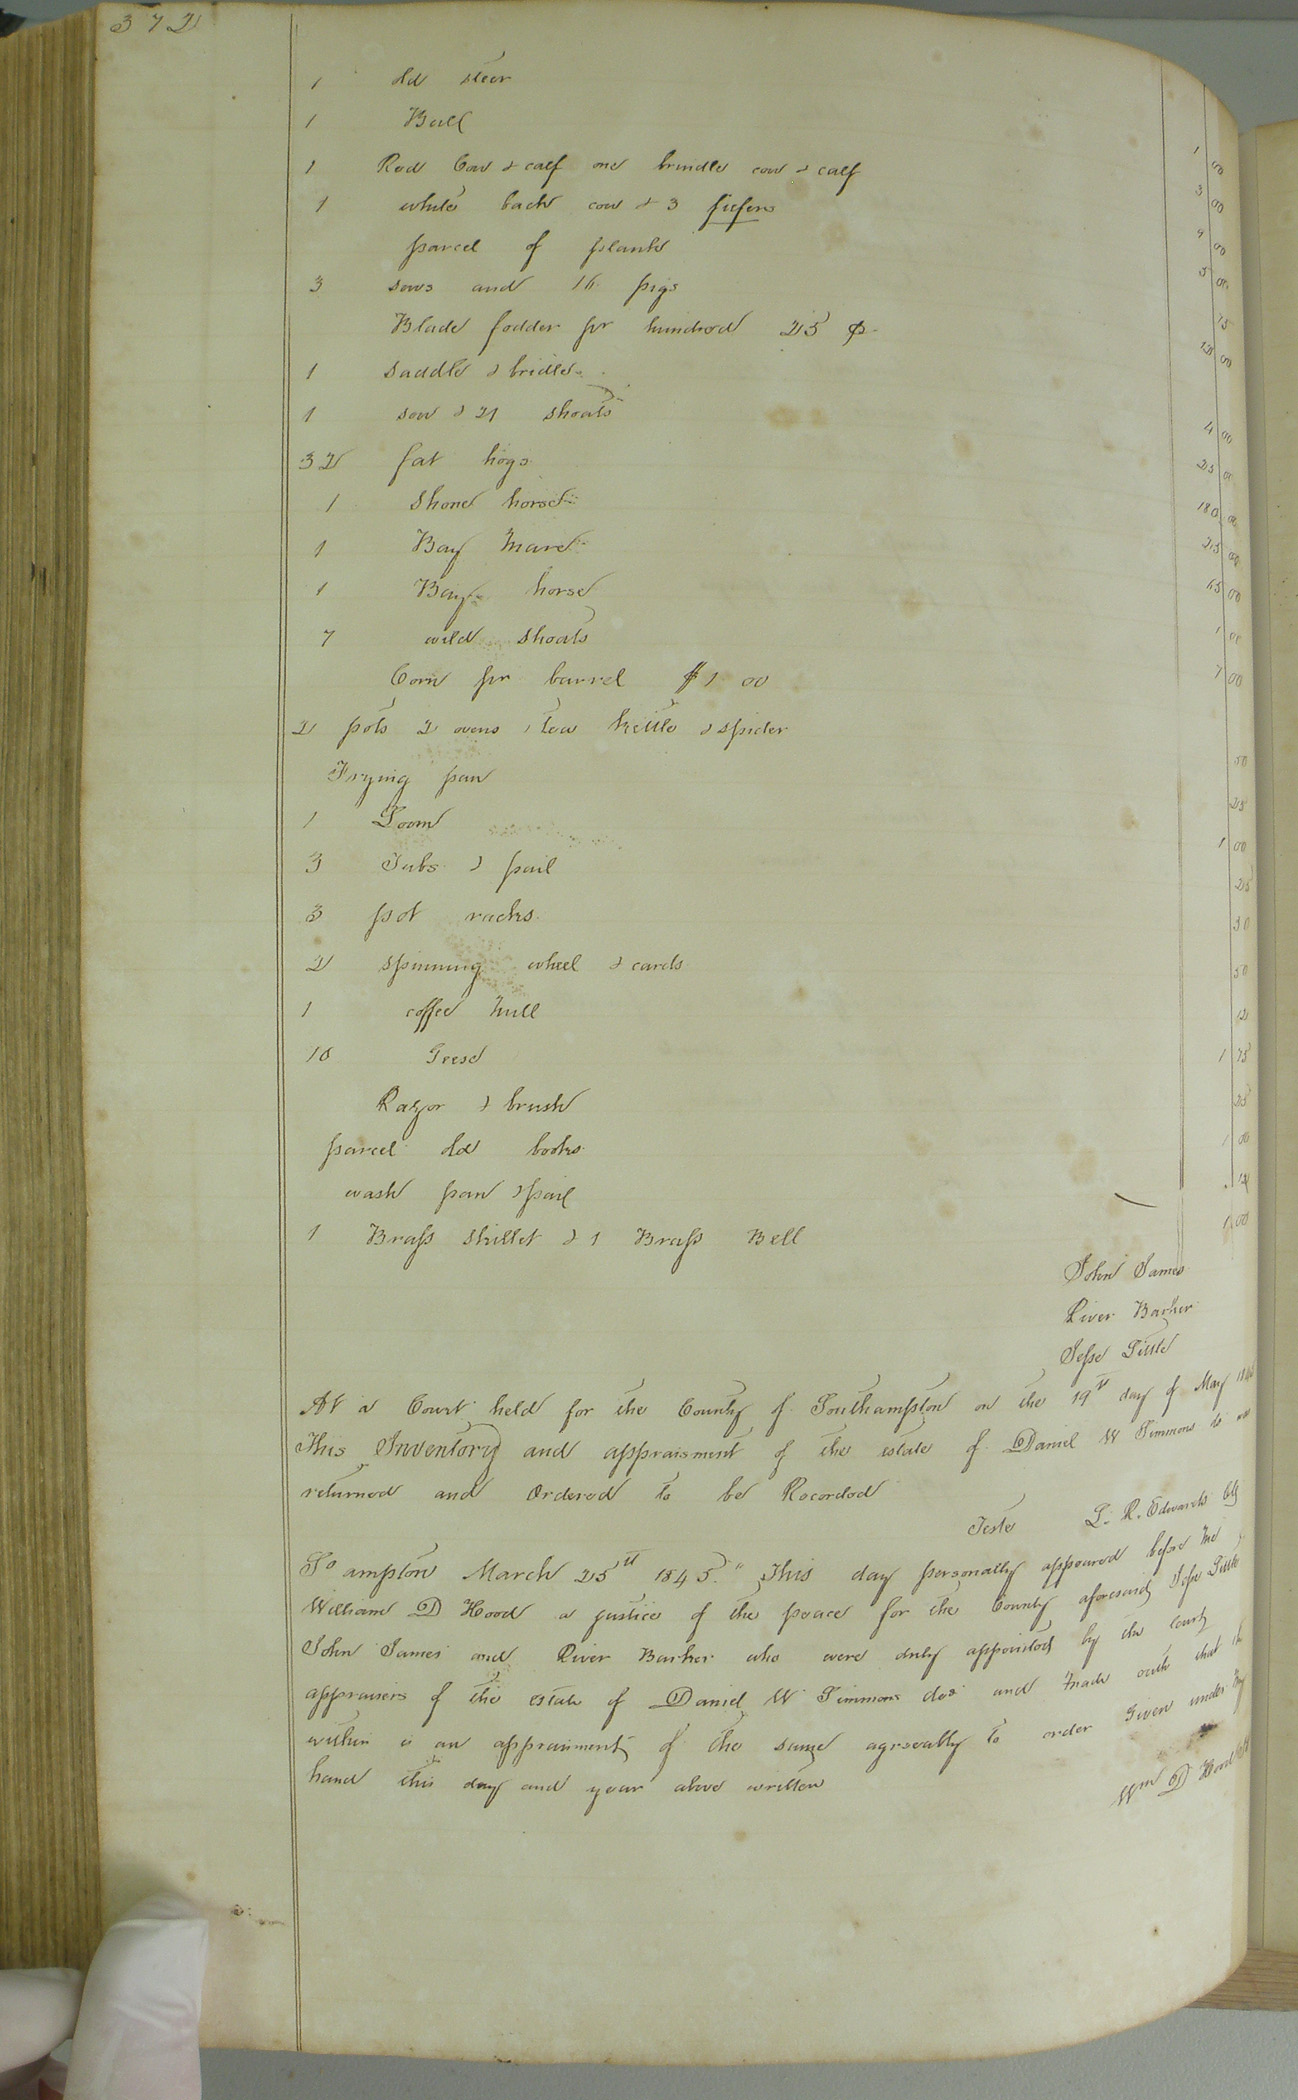 372
1 old steer 1 00
1 Bull 3 00
1 Red Cow & calf one brindle cow & calf 9 00
1 white back cow & 3 5 00
parcel of plank 75
3 sows and 16 pigs 12 00
Blade fodder pr hundred 25 ¢
1 saddle & bridle 4 00
1 sow & 21 shoats 25 00
32 fat hogs 180 00
1 horse 25 00
1 Bay Mare 65 00
1 Bay horse 1 00
7 wild shoats 7 00
Corn pr barrel $1 00
2 pots 2 ovens 1 tea kettle & spider
Frying pan 25
1 Loom 1 00
3 Tubs & pail 25
3 pot racks 30
2 spinning wheel & cards 50
1 coffee Mill 12
10 Geese 1 75
Razor & brush 25
parcel old books 1 00
wash pan & pail
1 Brass skillet & 1 Brass Bell 1 00
John James
River Barker
Jesse Little
At a Court held for the County of Southampton on the 19th day of May
This Inventory and appraisment of the estate of Daniel W Simmons
returned and Ordered to be Recorded
Teste L. R. Edwards Clk
So ampton March 25th 1845. This day personally appeared before me
William D Hood a justice of the peace for the County aforesaid Jesse Little
John James and River Barker who were duly appointed by the court
appraisers of the estate of Daniel W Simmons dec and made oath that the
within is an appraiment of the same agreeably to order Given under my
hand this day and year above written
Wm D Hood